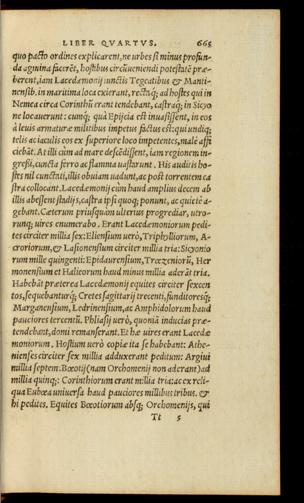 LIBER QVARTVS. 665
quo pacto ordines explicarent, ne urbes si minus profun-
da agmina facerẽt, hostibus circũueniendi potestatẽ præ-
berent, iam Lacedæmonij iunctis Tegeatibus & Manti-
nensib. in maritima loca exierant, rectaq; ad hostes qui in
Nemea circa Corinthũ erant tendebant, castraq; in Sicyo
ne locauerunt: cumq; quà Epijcia est inuasissent, in eos
à leuis armaturæ militibus impetus factus est: qui undiq;
telis ac iaculis eos ex superiore loco impetentes, malè affi
ciebãt. At illi cùm ad mare descẽdissent, iam regionem in-
gressi, cuncta ferro ac flamma uastarunt. His auditis ho-
stes nil cunctati, illis obuiam uadunt, ac post torrentem ca
stra collocant. Lacedæmonij cùm haud amplius decem ab
illis abessent stadijs, castra ipsi quoq; ponunt, ac quietè a-
gebant. Cæterum priusquàm ulterius progrediar, utro-
runq; uires enumerabo. Erant Lacedæmoniorum pedi-
tes circiter millia sex: Eliensium uerò, Triphylliorum, A-
croriorum, & Lasionensium circiter millia tria: Sicyonio
rum mille quingenti: Epidaurensium, Trœzeniorũ, Her
monensium et Halicorum haud minus millia aderãt tria.
Habebãt præterea Lacedæmonij equites circiter sexcen
tos, sequebanturq́; Cretes sagittarij trecenti, funditoresq́;
Marganensium, Ledrinensium, ac Amphidolorum haud
pauciores tercentũ. Phliasij uerò, quoniã inducias præ-
tendebant, domi remanserant. Et hæ uires erant Lacedæ
moniorum. Hostium uerò copiæ ita se habebant: Athe-
nienses circiter sex millia adduxerant peditum: Argiui
millia septem. Bœotij (nam Orchomenij non aderant) ad
millia quinq;: Corinthiorum erant millia tria: ac ex reli-
qua Eubœa uniuersa haud pauciores millibus tribus. &
hi pedites. Equites Bœotiorum absq; Orchomenijs, qui
Tt 5